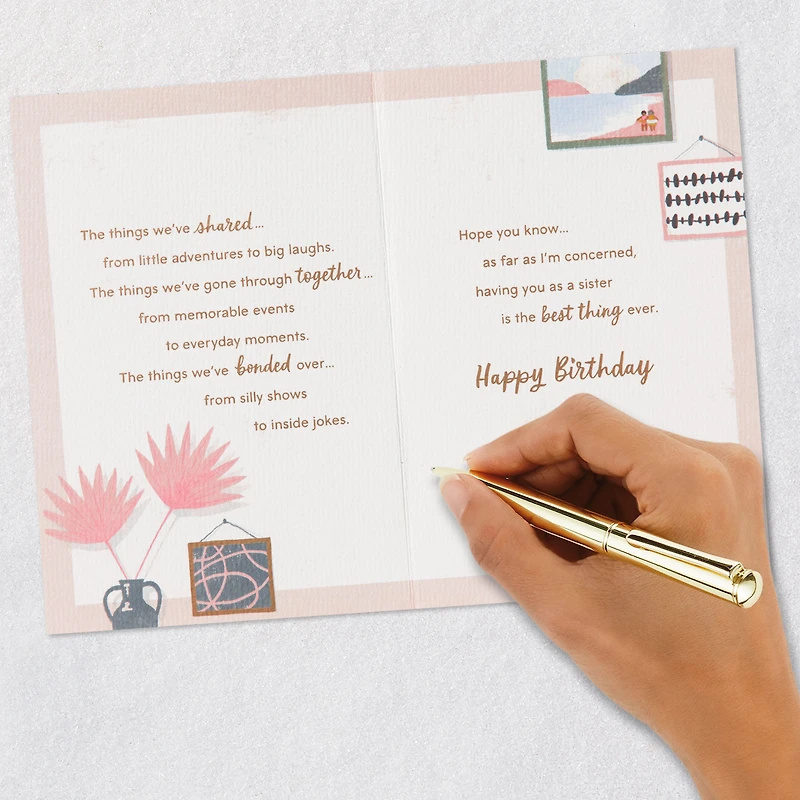 The things we've shared...
from little adventures to big laughs.
The things we've gone through together...
from memorable events
to everyday moments.
The things we've bonded over...
from silly shows
to inside jokes.
Hope you know...
as far as I'm concerned,
having you as a sister
is the best thing ever.
Happy Birthday